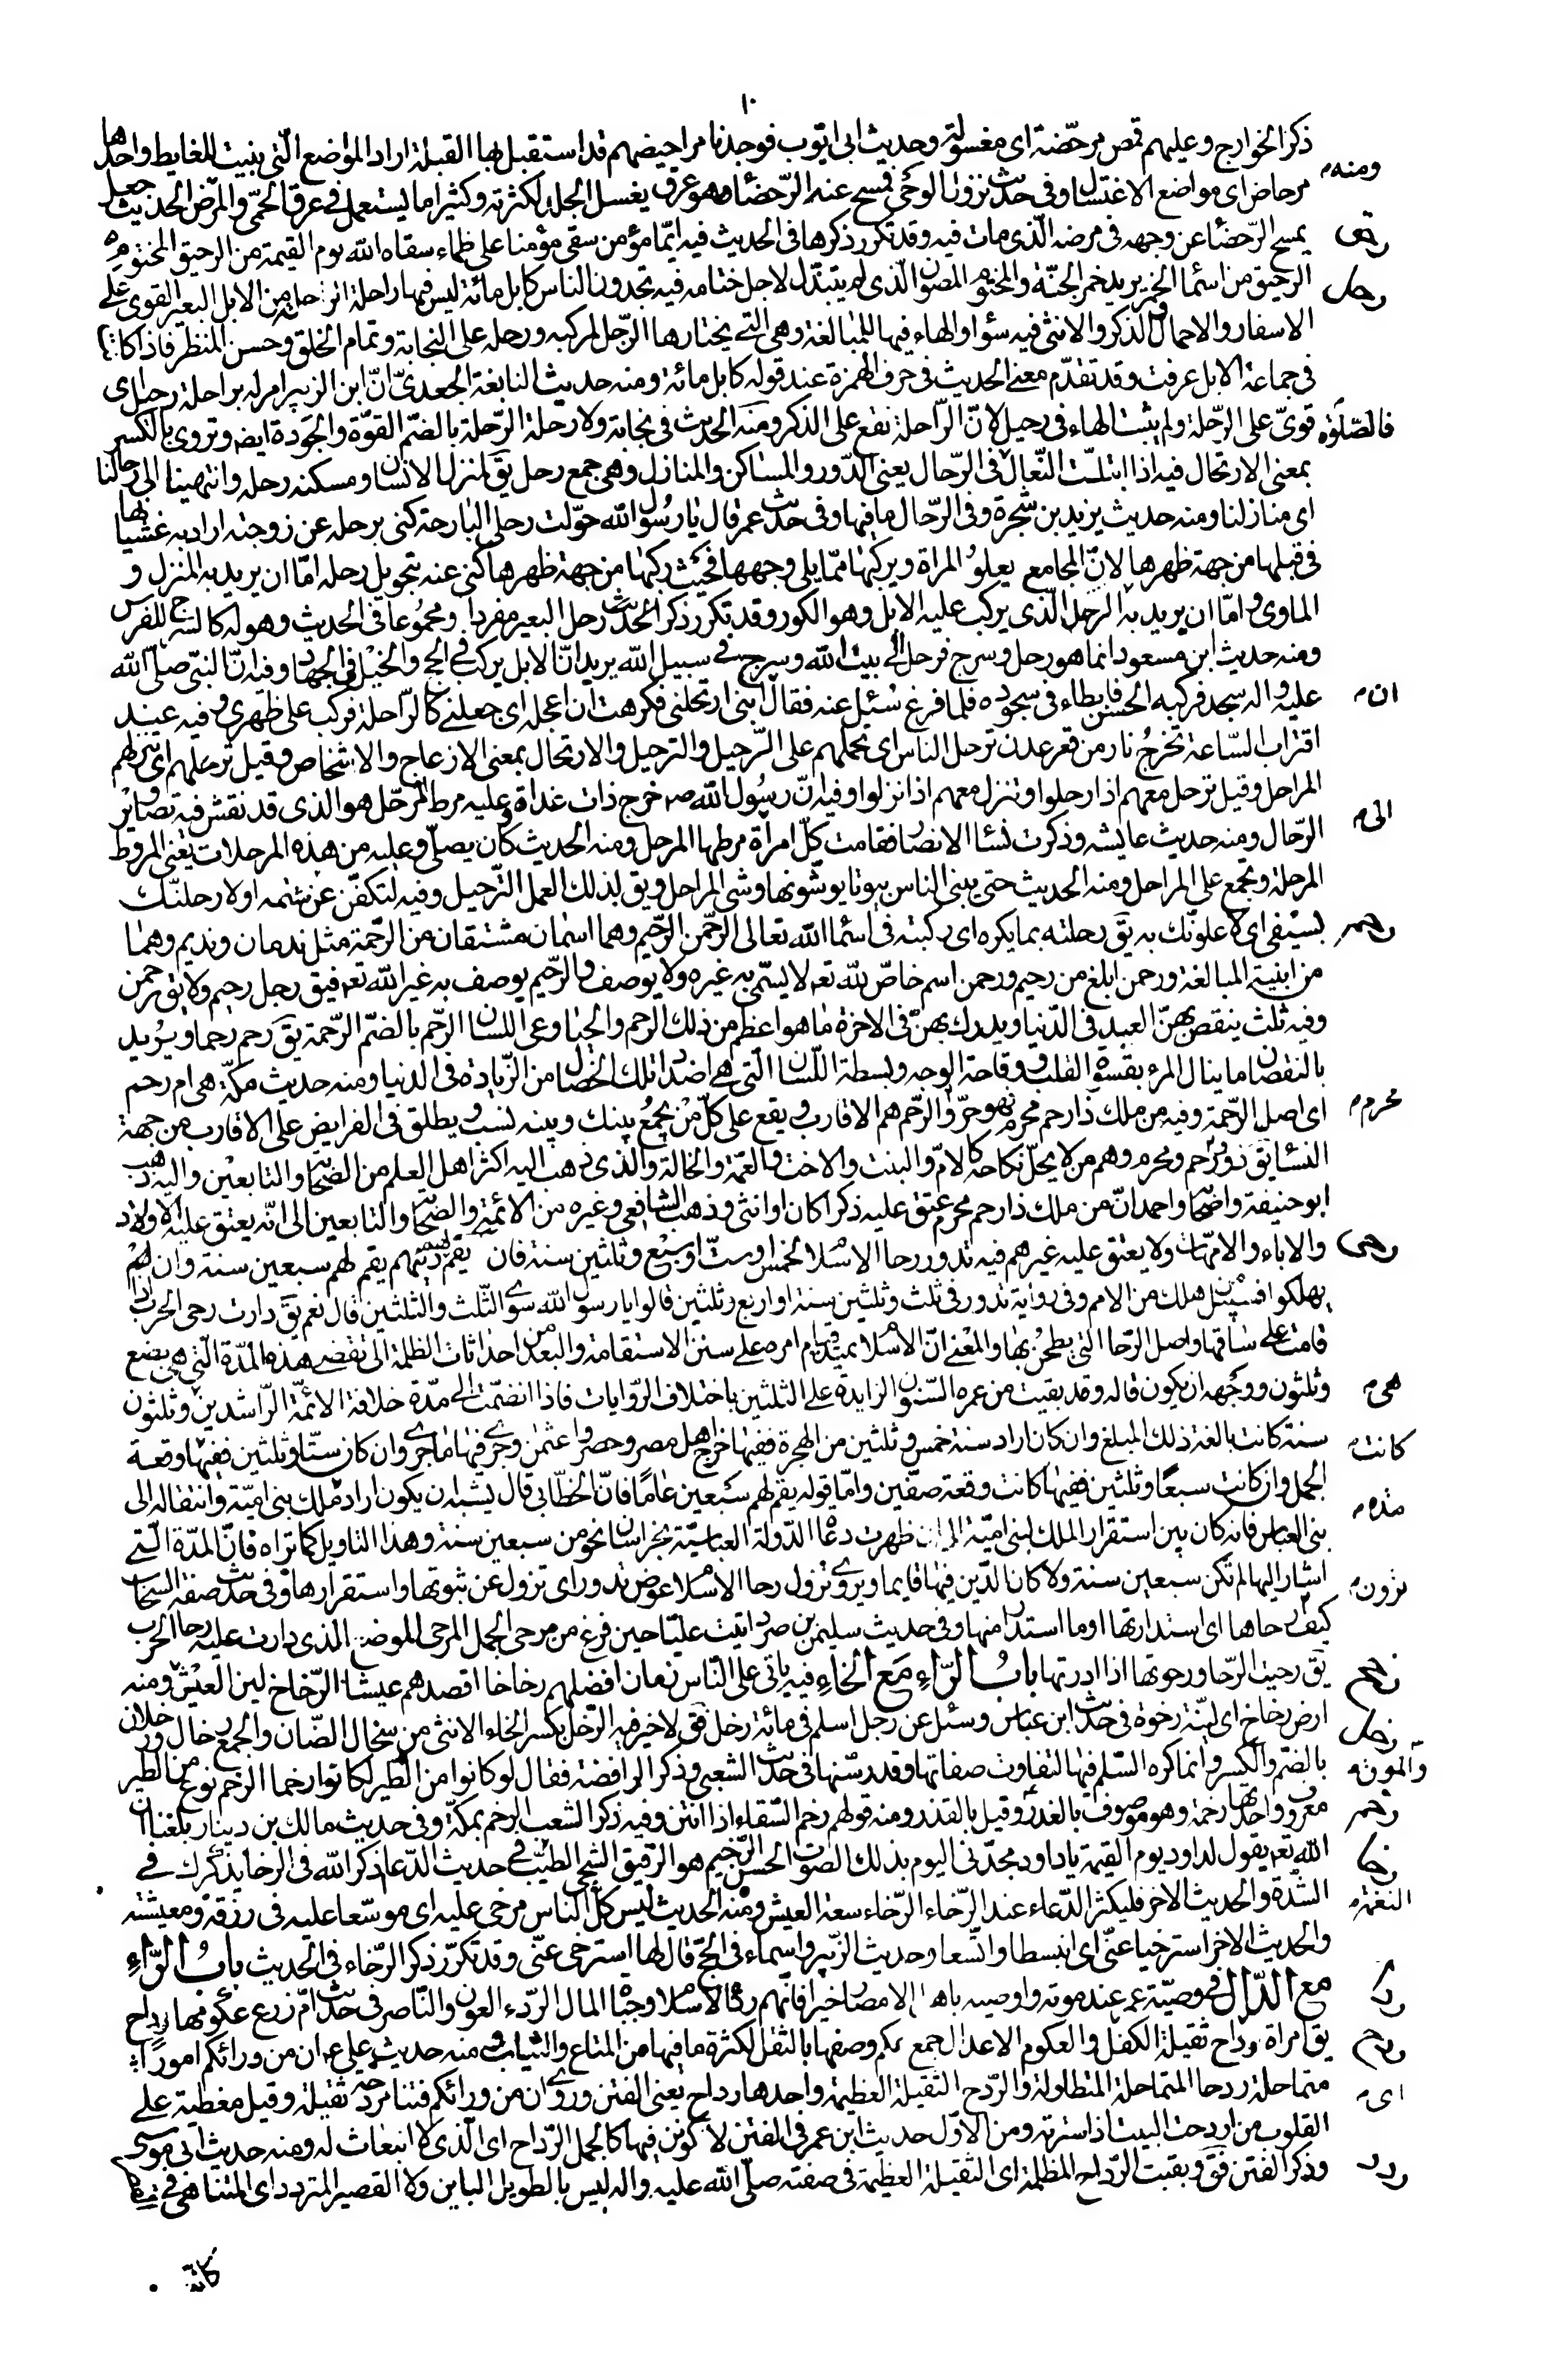 ١٠
ذكر الخوارج وعليهم قمص مرحّضة اى مغسولة وحديث ابى ايّوب فوجدنا مراحيضهم قد استقبل بها القبلة اراد المواضع الّتى بنيت للغايط واحدها
ومنه
مرحاض اى مواضع الاغتسال وفى حديث نزول الوحى فمسح عنه الرّحضاء هو عرق يغسل الجلد لكثرته وكثيرا ما يستعمل فى عرق الحمّى والمرض الحديث جعل
يمسح الرّحضاء عن وجهه فى مرضه الّذى مات فيه وقد تكرر ذكرها فى الحديث فيه ايّما مؤمن سقى مؤمنا على ظماء سقاه الله يوم القيمة من الرحيق المختوم
رحق
الرحيق من اسماء الخمر يريد خمر الجنّة والمختوم المصون الّذى لم يبتذل لاجل ختامه فيه تجدون الناس كابل مائة ليس فيها راحلة الراحلة من الابل البعير القوى على
رحل
الاسفار والاحمال والذكر والانثى فيه سواء والهاء فيها للمبالغة وهى الّتى يختارها الرّجل لمركبه ورحله على النجابة وتمام الخلق وحسن المنظر فاذا كانت
فى جماعة الابل عرفت وقد تقدّم معنى الحديث فى حرف الهمزة عند قوله كابل مائة ومنه حديث النابغة الجعدىّ انّ ابن الزبير امر له براحلة رحيل اى
قوىّ على الرّحلة ولم يثبت الهاء فى رحيل لانّ الرّاحلة تقع على الذكر ومنه الحديث فى نجابة ولا رحلة الرّحلة بالضمّ القوّة والجودة ايض وتروى بالكسر
فالصّلوة
بمعنى الارتحال فيه اذا ابتلّت النّعال فى الرّحال يعنى الدّور والمساكن والمنازل وهى جمع رحل يق لمنزل الانسان ومسكنه رحله وانتهينا الى رحالنا
اى منازلنا ومنه حديث يزيد بن شجرة وفى الرّحال ما فيها وفى حديث عمر قال يا رسول الله حوّلت رحلى البارحة كنى برحله عن زوجته اراد به غشيانها
فى قبلها من جهة ظهرها لانّ المجامع يعلو المراة ويركبها ممّا يلى وجهها فحيث ركبها من جهة ظهرها كنى عنه بتحويل رحله امّا ان يريد به المنزل و
الماوى وامّا ان يريد به الرحل الّذى يركب عليه الابل وهو الكور وقد تكرر ذكر الحديث رحل البعير مفردا ومجموعا فى الحديث وهو له كالسّرج للفرس
ومنه حديث ابن مسعود انما هو رحل وسرج فرحل الى بيت الله وسرج فى سبيل الله يريد انّ الابل يركب فى الحج والخيل فى الجهاد وفيه انّ النبىّ صلّى الله
عليه واله سجد فركبه الحسن فابطاء فى سجوده فلما فرغ سُئل عنه فقال ابنى ارتحلنى فكرهت ان اعجله اى جعلنى كالرّاحلة فركب على ظهرى وفيه عند
ان
اقتراب السّاعة تخرجُ نار من قعر عدن ترحل الناس اى تحملهم على الرّحيل والترحيل والارتحال بمعنى الازعاج والاشخاص وقيل ترحلهم اى تنزلهم
المراحل وقيل ترحل معهم اذا رحلوا وتنزل معهم اذا نزلوا وفيه انّ رسُول الله ص خرج ذات غداة وعليه مرط مرّحّل هو الذى قد نقش فيه تصاوير
الرّحال ومنه حديث عايشه وذكرت نساء الانصار فقامت كلّ امراة الى مرطها المرحل ومنه الحديث كان يصلّى وعليه من هذه المرحلات يعنى المروط
الى
المرحلة وتجمع على المراحل ومنه الحديث حتى يبنى الناس بيوتا يوشّونها وشى المراحل ويق لذلك العمل التّرحيل وفيه لتكفّن عن شتمه او لارحلنّك
بسيفى اى لاعلونّك به يق رحلته بما يكره اى ركبته فى اسماء الله تعالى الرّحمن الرّحيم وهما اسمان مشتقان من الرّحمة مثل ندمان ونديم وهما
رحم
من ابنية المبالغة ورحمن ابلغ من رحيم ورحمن اسم خاصّ لله تع لا يسمّى به غيره ولا يوصف والرّحيم يوصف به غير الله تع فيق رجل رحيم ولا يق رحمن
وفيه ثلث ينقص بهنّ العبد فى الدّنيا ويدرك بهنّ فى الاخرة ما هو اعظم من ذلك الرحم والحياء وعىّ اللسان الرّحم بالضمّ الرّحمة يق رحم رحما ويريد
بالنقصان ما ينال المرء بقسوة القلب ووقاحة الوجه وبسطة اللّسان الّتى هى اضداد تلك الخصال من الزّيادة فى الدنيا ومنه حديث مكّة هى ام رحم
اى اصل الرّحمة وفيه من ملك ذا رحم محرم فهو حرّ والرّحم هم الاقارب ويقع على كلّ من يجمع بينك وبينه نسب ويطلق فى الفرايض على الاقارب من جهة
محرم
النساء يق ذو رحم ومحرم وهم من لا يحلّ نكاحه كالامّ والبنت والاخت والعمّة والخالة والّذى ذهب اليه اكثر اهل العلم من الصّحابة والتابعين واليه ذهب
ابو حنيفة واصحابه واحمد انّ من ملك ذا رحم محرم عتق عليه ذكرا كان او انثى وذهب الشافعى وغيره من الائمّة والصّحابة والتابعين الى انّه يعتق عليه الاولاد
والاباء والامّهات ولا يعتق عليه غيرهم فيه تدور رحا الاسلام لخمس او ستّ او سبع وثلثين سنة فان يقم لهم دينهم يقم لهم سبعين سنة وان
رحى
يهلكوا فسبيل من هلك من الامم وفى رواية تدور فى ثلث وثلثين سنة او اربع وثلثين قالوا يا رسول الله سوى الثلث والثلثين قال نعم يق دارت رحى الحرب اذا
قامت على ساقها واصل الرّحا التى يطحن بها والمعنى انّ الاسلام يمتدّ قيام امره على سنن الاستقامة والبعد من احداثات الظلمة الى تقضّى هذه المدّة الّتى هى بضع
وثلثون ووجهه ان يكون قاله وقد بقيت من عمره السّنون الزايدة على الثلثين باختلاف الرّوايات فاذا انضمّت الى مدّة خلافة الائمّة الرّاشدين وثلثون
هى
سنة كانت بالغة ذلك المبلغ وان كان اراد سنة خمس وثلثين من الهجرة ففيها خرج اهل مصر وحصروا عثمن وجرى فيها ما جرى وان كان ستّا وثلثين ففيها وقعة
كانت
الجمل وان كانت سبعًا وثلثين ففيها كانت وقعة صفّين وامّا قوله يقم لهم سبعين عامًا فانّ الخطّابى قال يشبه ان يكون اراد ملك بنى اميّة وانتقاله الى
مده
بنى العباس فانه كان بين استقرار الملك لبنى اميّة الى ان ظهرت دعاة الدّولة العباسيّة بخراسان نحو من سبعين سنة وهذا التاويل كما تراه فانّ المدّة الّتى
اشار اليها لم تكن سبعين سنة ولا كان الدّين فيها قايما ويروى تزول رحا الاسلام عوض تدور اى تزول عن ثبوتها واستقرارها وفى حديث صفة السّحاب
ترون
كيف رحاها اى استدارتها او ما استدار منها وفى حديث سليمن بن صرد اتيت عليّا حين فرغ من مرحى الجمل المرحى الموضع الذى دارت عليه رحا الحرب
يق رحيت الرّحا ورحوتها اذا ادرتها بابُ الرّاءِ مَع الخاءِ فيه ياتى على النّاس زمان افضلهم رخاخا اقصدهم عيشا الرّخاخ لين العيش ومنه
رخخ
ارض رخاخ اى ليّنة رخوة فى حديث ابن عباس وسئل عن رجل اسلم فى مائة رخل فق لا خير فيه الرّخل بكسر الخاء الانثى من سخال الضّان والجمع رخال ورخلان
رخل
بالضمّ والكسر وانما كره السّلم فيها لتفاوت صفاتها وقدر سنّها فى حديث الشعبى وذكر الرافضة فقال لو كانوا من الطير لكانوا رخما الرّخم نوع من الطير
معروف واحدتها رخمة وهو موصوف بالغدر وقيل بالقذر ومنه قولهم رخم السّقاء اذا انتن وفيه ذكر الشعب الرخم بمكّة وفى حديث مالك بن دينار بلغنا ان
رخم
الله تع يقول لداود يوم القيمة يا داود مجّدنى اليوم بذلك الصّوت الحسن الرّخيم هو الرّقيق الشجى الطيّب فى حديث الدّعاء اذكر الله فى الرخاء يذكرك فى
رخا
الشدّة والحديث الاخر فليكثر الدّعاء عند الرّخاء الرّخاء سعة العيش ومنه الحديث ليس كلّ الناس مرخى عليه اى موسّعا عليه فى رزقه ومعيشته
والحديث الاخر استرخيا عنّى اى انبسطا واتّسعا وحديث الزّبير واسماء فى الحجّ قال لها استرخى عنّى وقد تكرّر ذكر الرّخاء فى الحديث بابُ الرّاءِ
مع الدّال فى وصيّة عمر عند موته واوصيه باهل الامصار خيرا فانّهم ردء الاسلام وجباة المال الرّدء العون والنّاصر فى حديث امّ زرع عكومها رداح
ردا
يق امراة رداح ثقيلة الكفل والعكوم الاعدال جمع عكم وصفها بالثقل لكثرة ما فيها من المتاع والثياب ومنه حديث على ع ان من ورائكم امورًا
ردح
متماحلة ردحا المتماحلة المتطاولة والرّدح الثقيلة العظيمة واحدها رداح يعنى الفتن وروى ان من ورائكم فتنا مردحة ثقيلة وقيل مغطية على
اى
القلوب من اردحت البيت اذا سترته ومن الاوّل حديث ابن عمر فى الفتن لاكونن فيها كالجمل الرّداح اى الّذى لا انبعاث له ومنه حديث ابى موسى
وذكر الفتن فق وبقيت الرّداح المظلمة اى الثقيلة العظيمة فى صفته صلّى الله عليه واله ليس بالطويل الباين ولا القصير المتردد اى المتناهى فى
ردد
كانّه